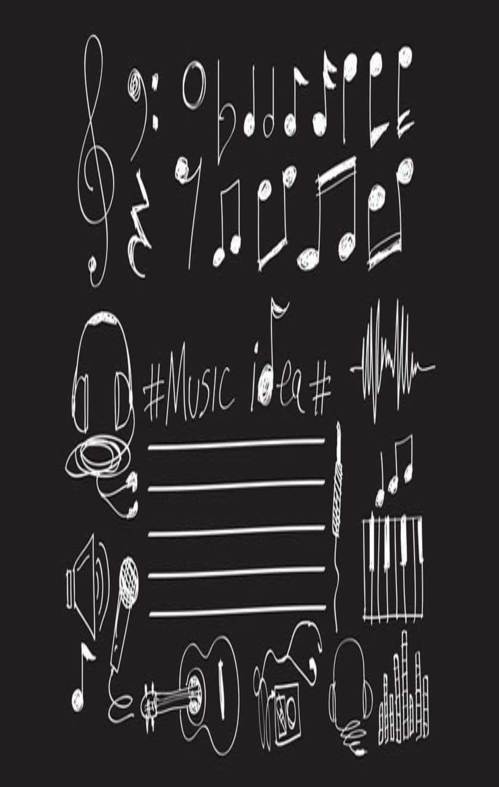 #Music idea#